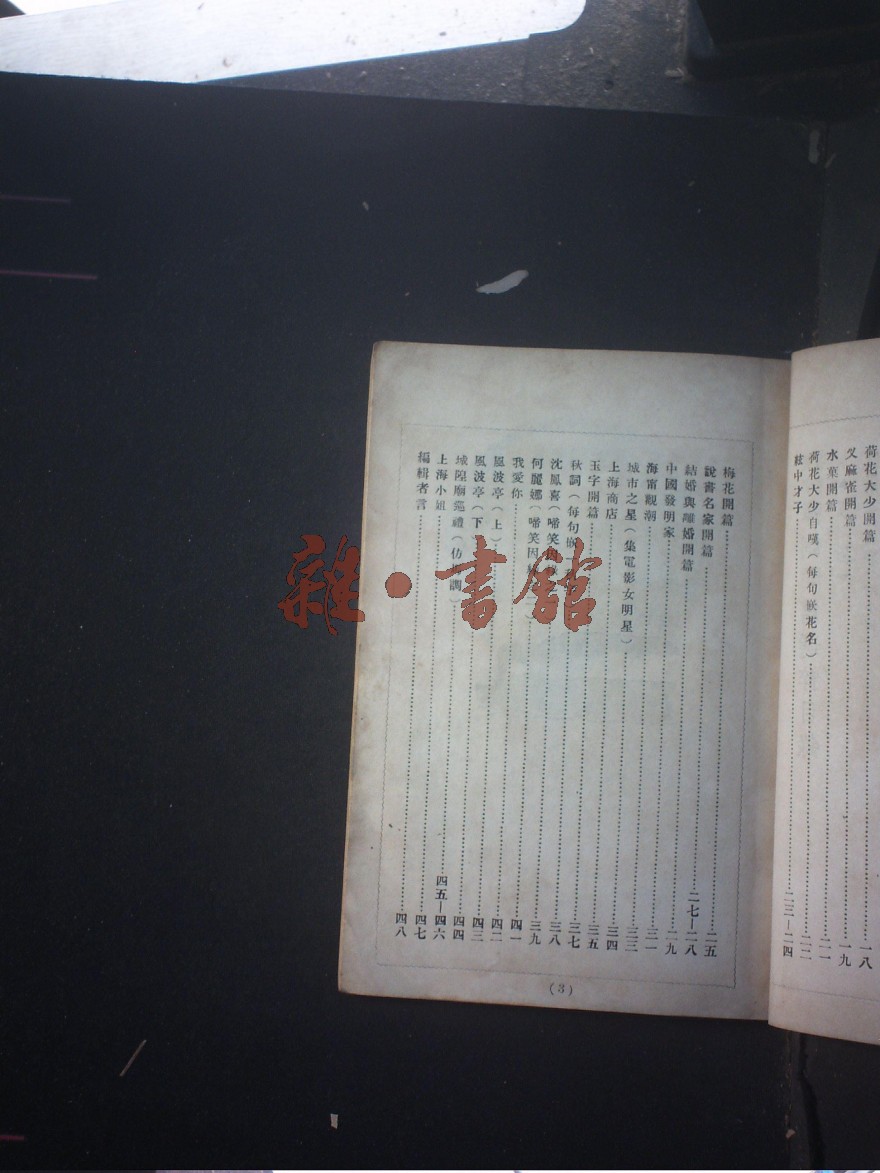 荷花大少開篇……一八
叉麻雀開篇……一九
水菓開篇……二一
荷花大少自嘆(每句嵌花名)……二二
絃中才子……二三—二四
梅花開篇……二五
說書名家開篇……二七—二八
結婚與離婚開篇……二九
中國發明家……三一
海甯觀潮……三三
城市之星(集電影女明星)……三四
上海商店……三五
玉字開篇……三七
秋詞(每句嵌……三八
沈鳳喜(啼笑因……三九
何麗娜(啼笑因……四一
我愛你……四二
風波亭(上)……四三
風波亭(下)……四四
城隍廟巡禮(仿 調)……四五—四六
上海小姐……四七
編輯者言……四八
(3)
雜·書館